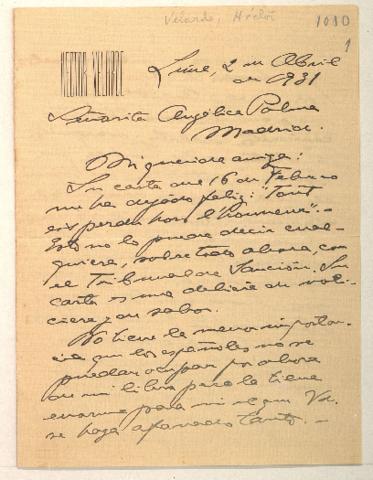 Velarde, Héctor
1010
1
HECTOR VELARDE
Lima, 2 de Abril
de 1931
Señorita Angélica Palma
Madrid.
Mi querida amiga:
Su carta del 16 de Febrero
me ha dejado feliz: "Tout
est perdu hors l'honneur".-
Esto no lo puede decir cual-
quiera, sobre todo ahora, con
el Tribunal de Sanción. Su
carta es una delicia de noti-
cias y de sabor.
No tiene la menor importan-
cia que los españoles no se
puedan ocupar por ahora
de mi libro pero la tiene
enorme para mí el que Vd.
se haya afanado tanto. -